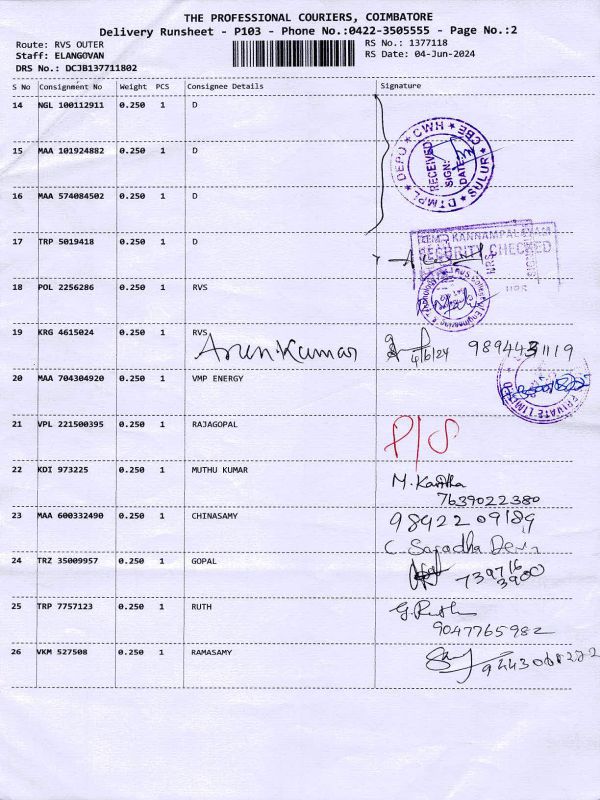 THE PROFESSIONAL COURIERS, COIMBATORE
Delivery Runsheet - P103 - Phone No.:0422-3505555 - Page No.:2
Route: RVS OUTER
RS No.: 1377118
Staff: ELANGOVAN
RS Date: 04-Jun-2024
DRS No.: DCJB137711802
S No Consignment No Weight PCS Consignee Details Signature
14 NGL 100112911 0.250 1 D
DEPO * CWH * CBE
RECEIVED
SIGN:
DATE:
DTMPL * SULUR
15 MAA 101924882 0.250 1 D
16 MAA 574084502 0.250 1 D
17 TRP 5019418 0.250 1 D
KANNAMPALAYAM
SECURITY CHECKED
18 POL 2256286 0.250 1 RVS
19 KRG 4615024 0.250 1 RVS
Arun.Kumar 4/6/24 9894431119
20 MAA 704304920 0.250 1 VMP ENERGY
PRIVATE LIMITED
21 VPL 221500395 0.250 1 RAJAGOPAL P/S
22 KDI 973225 0.250 1 MUTHU KUMAR
M. Kavitha
7639022380
23 MAA 600332490 0.250 1 CHINASAMY 98422 09189
C. Saradha Devi
24 TRZ 35009957 0.250 1 GOPAL
739716
3900
25 TRP 7757123 0.250 1 RUTH G. Ruth
9047765982
26 VKM 527508 0.250 1 RAMASAMY